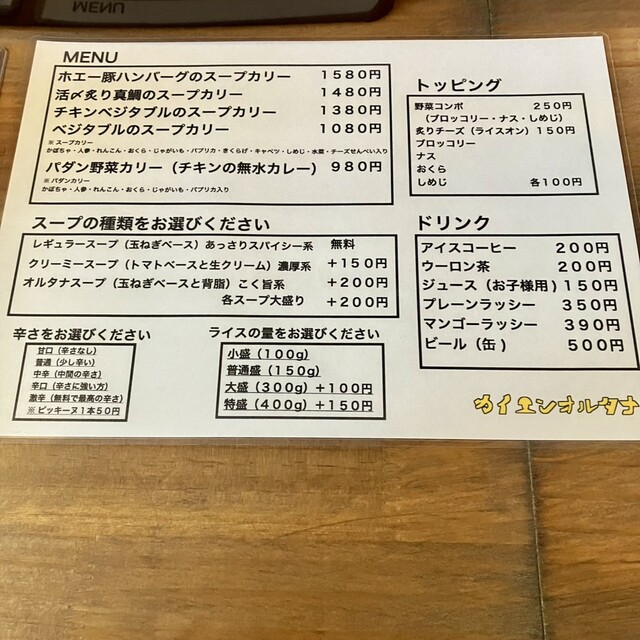 MENU
MENU
ホエー豚ハンバーグのスープカリー 1580円
活〆炙り真鯛のスープカリー 1480円
チキンベジタブルのスープカリー 1380円
ベジタブルのスープカリー 1080円
※スープカリー
かぼちゃ・人参・れんこん・おくら・じゃがいも・パプリカ・きくらげ・キャベツ・しめじ・水菜・チーズせんべい入り
パダン野菜カリー（チキンの無水カレー）980円
※パダンカリー
かぼちゃ・人参・れんこん・おくら・じゃがいも・パプリカ入り
スープの種類をお選びください
レギュラースープ（玉ねぎベース）あっさりスパイシー系 無料
クリーミースープ（トマトベースと生クリーム）濃厚系 +150円
オルタナスープ（玉ねぎベースと背脂）こく旨系 +200円
各スープ大盛り +200円
辛さをお選びください
甘口（辛さなし）
普通（少し辛い）
中辛（中間の辛さ）
辛口（辛さに強い方）
激辛（無料で最高の辛さ）
※ピッキーヌ1本50円
ライスの量をお選びください
小盛（100g）
普通盛（150g）
大盛（300g）+100円
特盛（400g）+150円
トッピング
野菜コンボ 250円
（ブロッコリー・ナス・しめじ）
炙りチーズ（ライスオン）150円
ブロッコリー
ナス
おくら
しめじ 各100円
ドリンク
アイスコーヒー 200円
ウーロン茶 200円
ジュース（お子様用）150円
プレーンラッシー 350円
マンゴーラッシー 390円
ビール（缶）500円
カイエンオルタナ